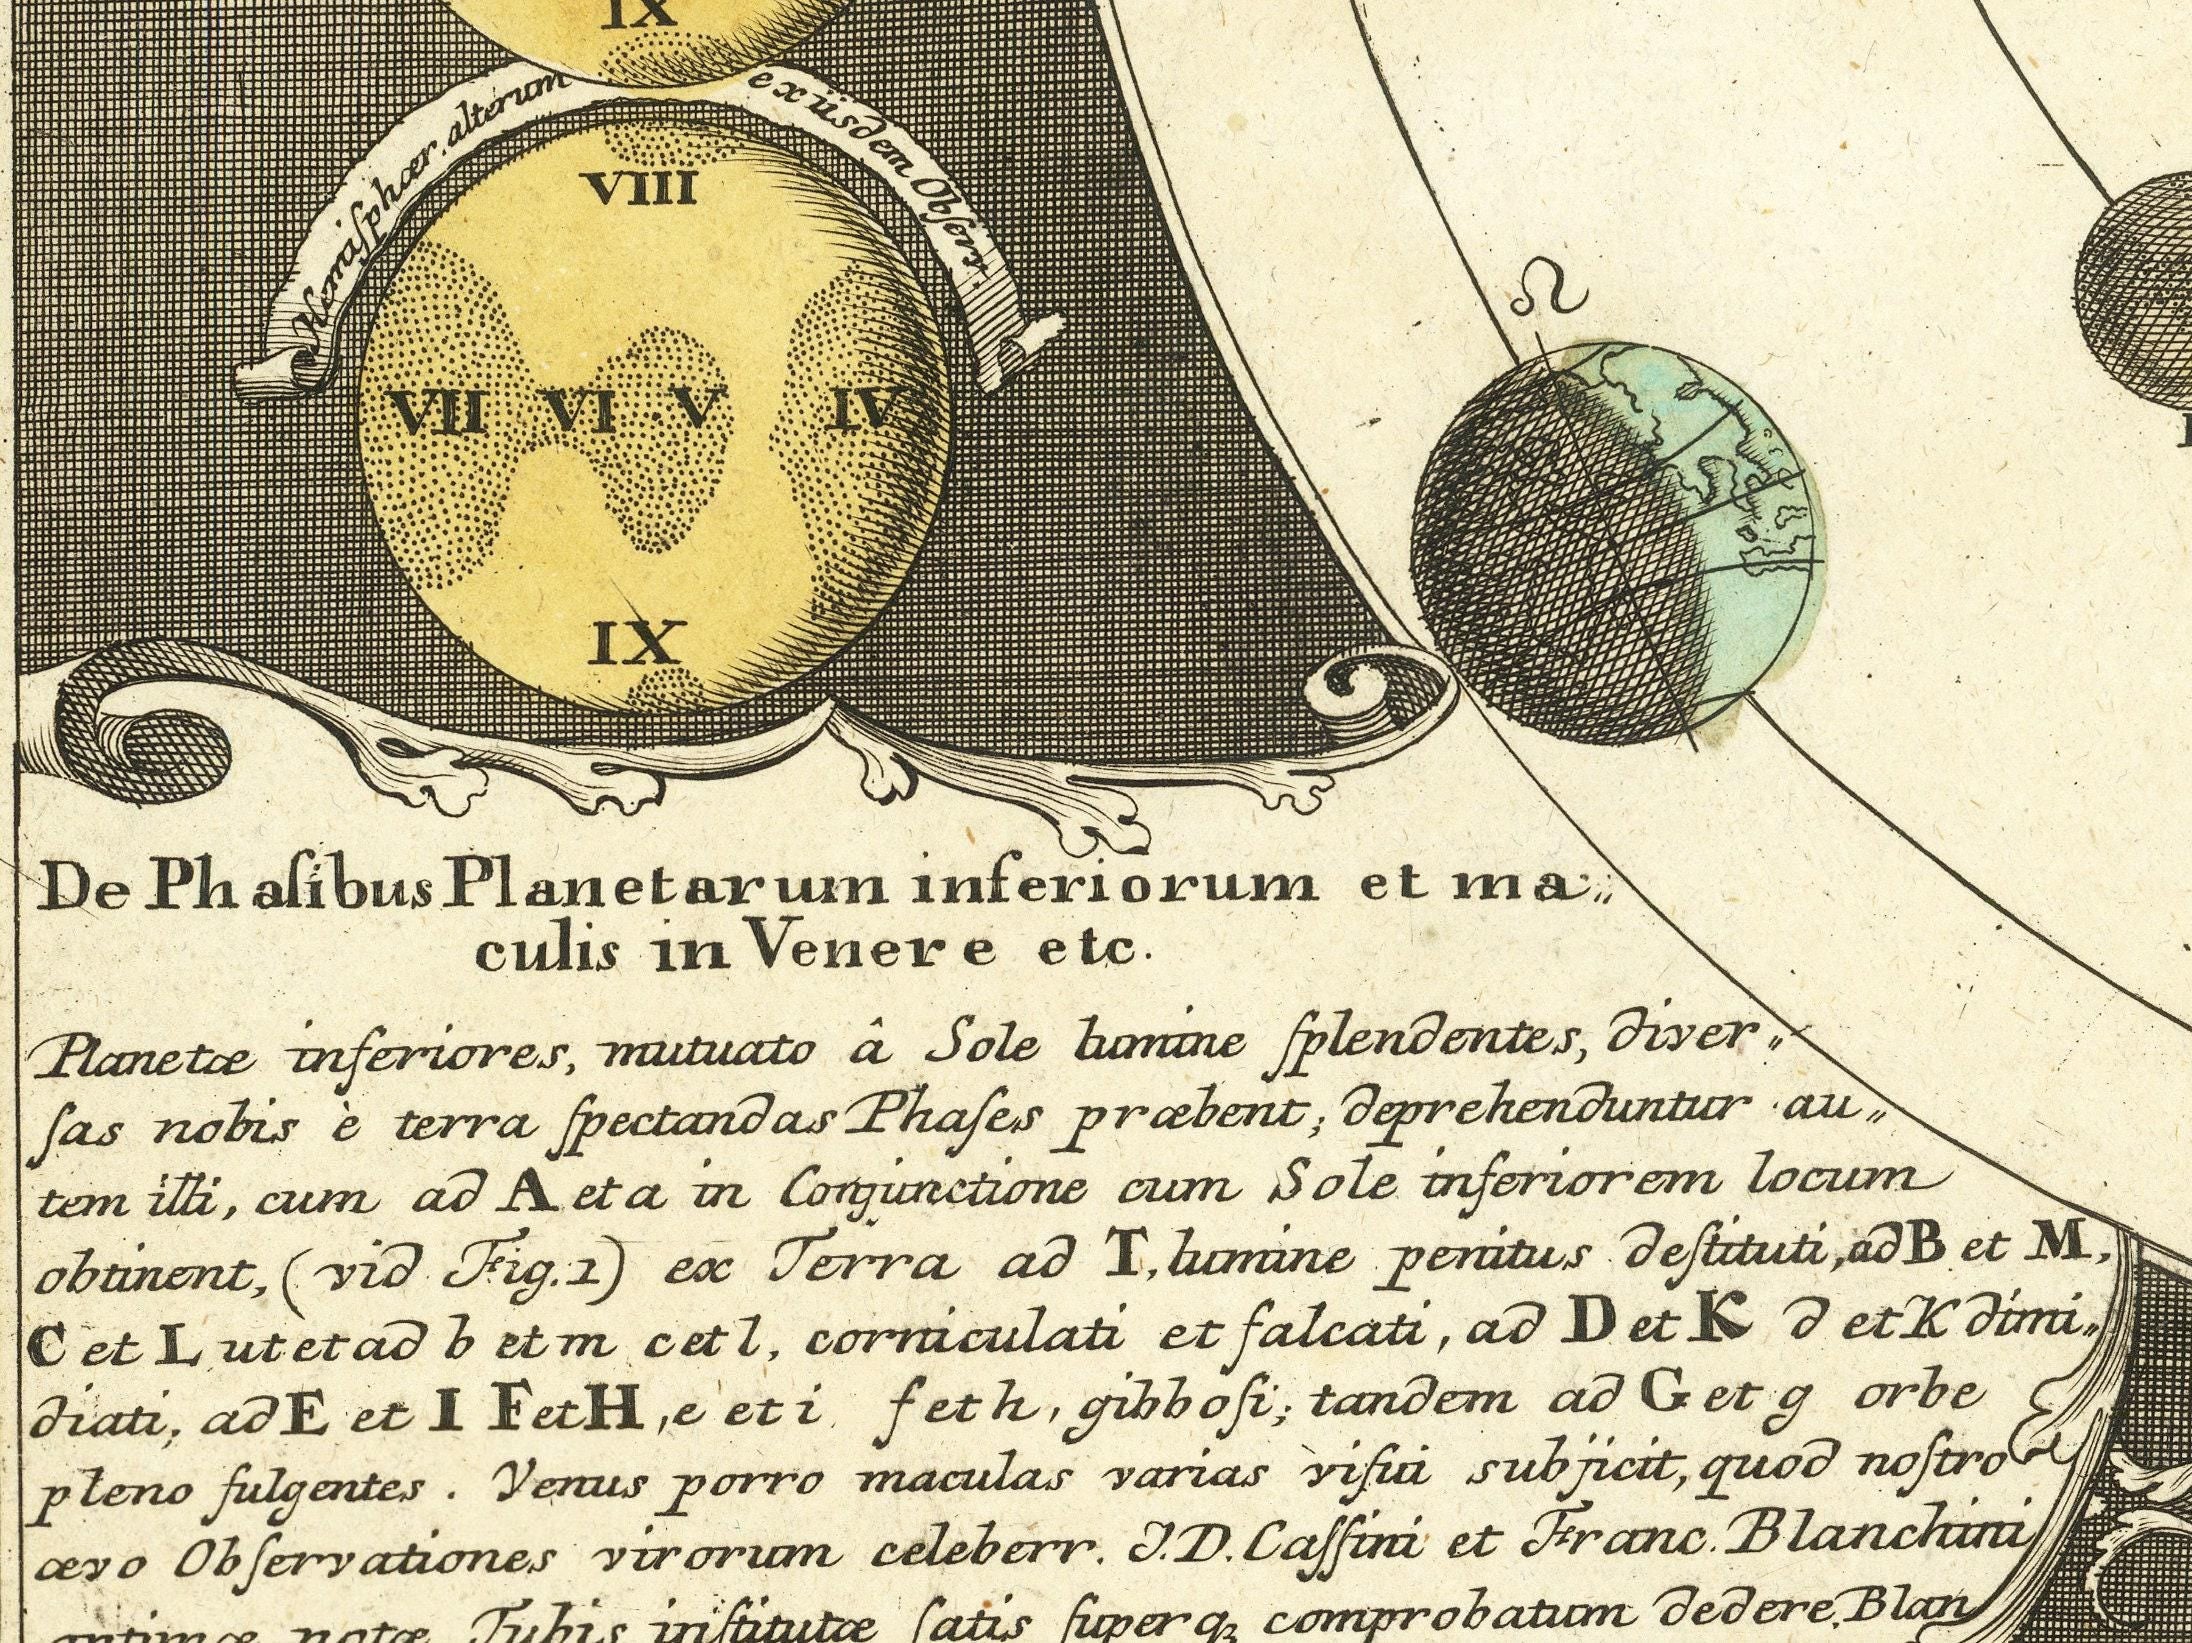 IX
Hemiſphær. alterum ex iisdem Obſerv.
VIII
VII VI V IV
IX
♌
De Phaſibus Planetarum inferiorum et ma„
culis in Venere etc.
Planetæ inferiores, mutuato â Sole lumine ſplendentes, diver„
ſas nobis è terra ſpectandas Phaſes præbent; deprehenduntur au„
tem illi, cum ad A et a in Conjunctione cum Sole inferiorem locum
obtinent, (vid Fig. 1) ex Terra ad T, lumine penitus deſtituti, ad B et M,
C et L ut et ad b et m c et l, corniculati et falcati, ad D et K d et K dimi„
diati, ad E et I F et H, e et i f et h, gibboſi; tandem ad G et g orbe
pleno fulgentes. Venus porro maculas varias viſui subjicit, quod noſtro
ævo Obſervationes virorum celeberr. J. D. Caſſini et Franc. Blanchini
notæ Tubis inſtitutæ ſatis ſuperqꝫ comprobatum dedere. Blan